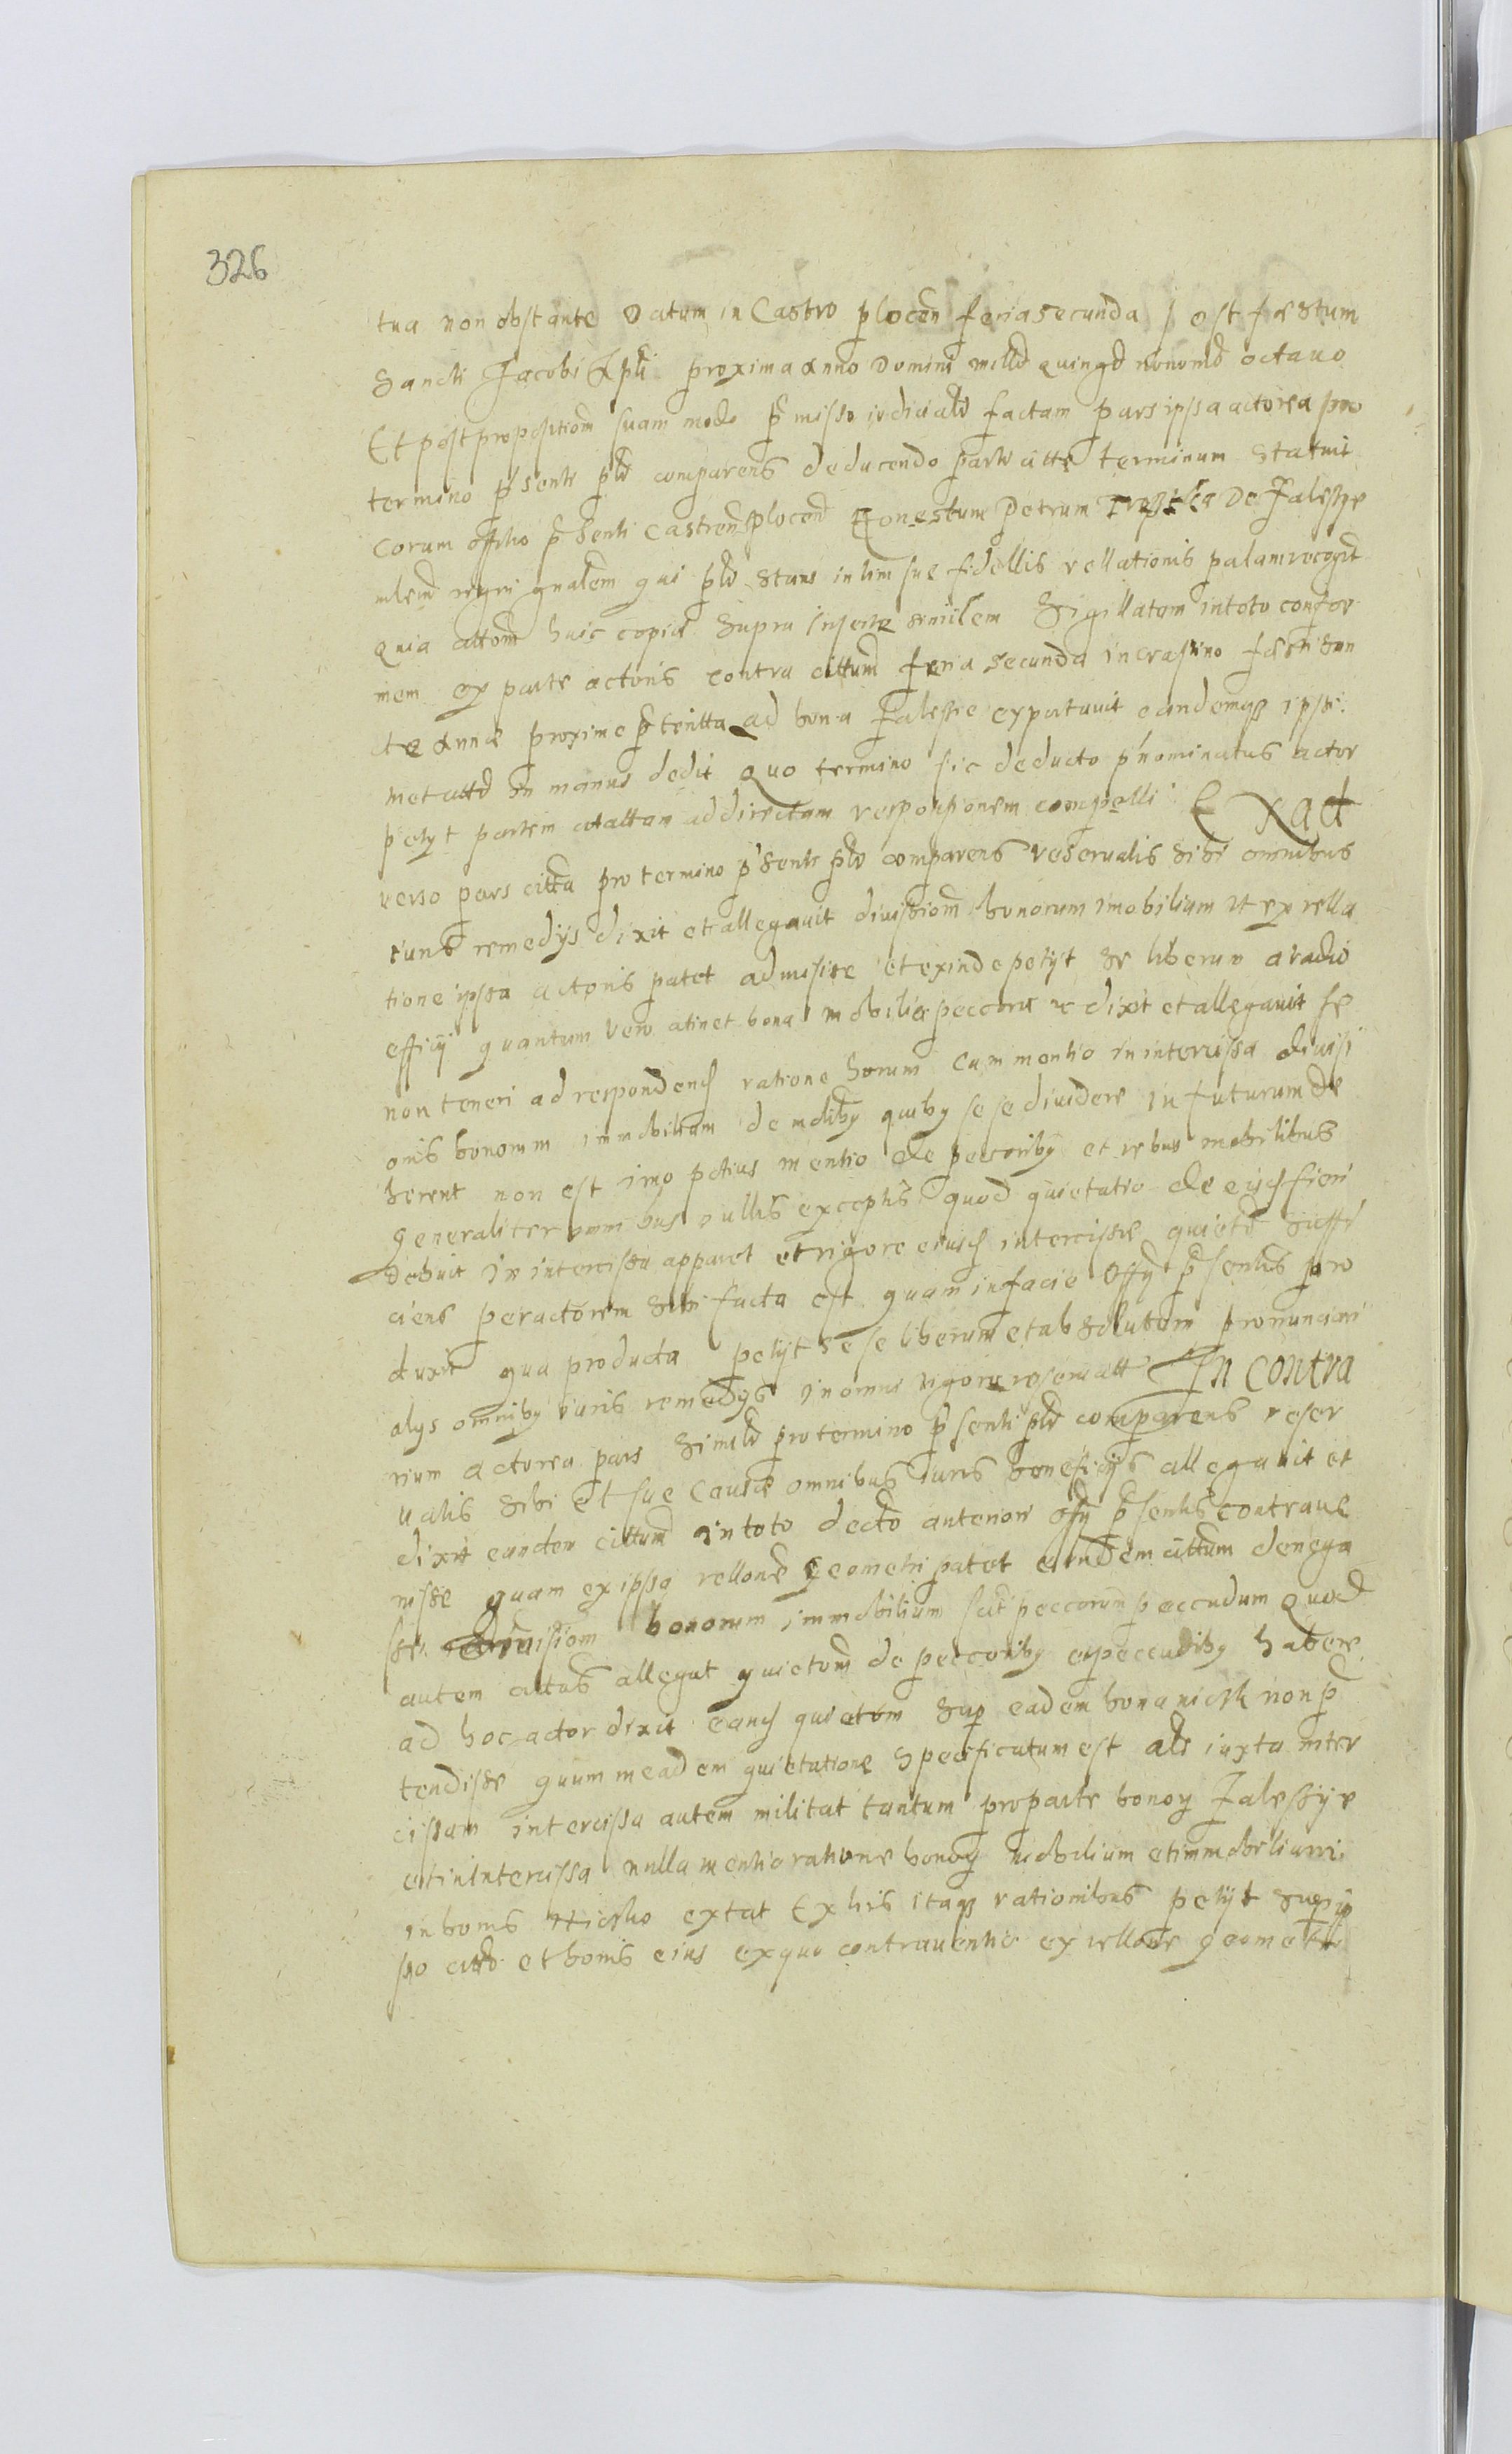 326
tua non obstante Datum in Castro plocen feria secunda post festum
Sancti Jacobi Apli proxima Anno Domini milld quingd nonomd octavo
Et post propositiom suam modo p̃misso iudiciald factam pars ipsa actorea pro
termino p̃senti pld comparens deducendo parti citte terminum statuit
coram offitio p̃senti Castren plocen Honestum Petrum de Zalesye
mlem regni gnalem qui pld stans in lim sue fidellis rellationis palam recogt
Quia cittom huic copie supra inserte similem Sigillatam in toto confor
mem ex parte actoris contra cittum feria secunda in crastino festi San
cte Annæ proxime p̃teritta ad bona Zalesie exportavit eandemqз ipsi
met citto in manus dedit Quo termino sic deducto p̃nominatus actor
petyt partem citattam ad directam responsionem compelli Ex ad
verso pars citta pro termino p̃senti pld comparens reservatis sibi omnibus
iuris remedijs dixit et allegavit divisiom bonorum imobilium ut ex rella
tione ipsa actoris patet admisisse et exinde petijt se liberum a vadio
efficij quantum vero atinet bona mobilia peccora etc dixit et allegavit se
non teneri ad respondend ratione horum Cum mentio in intercissa divisi
onis bonorum immobilium de mdibз quibз se se dividere in futurum de
berent non est imo potius mentio de peccoribз et rebus mobilibus
generaliter omnibus nullis exceptis quod quietatio de eijsd fieri
debuit in intercissa apparet et vigore eiusd intercissæ quietō suffi
ciens per actorem sibi facta est quam in facie Offy p̃sentis pro
duxit qua producta petijt se se liberum et absolutum pronunciari
alys omnibз iuris remedys in omni vigore reservatt In contra
rium actorea pars Simild pro termino p̃senti pld comparens reser
vatis sibi et sue causæ omnibus iuris beneficijs allegavit et
dixit eundem cittum in toto decto anteriori offy p̃sentis contrave
nisse quam ex ipsa rellone geometri patet eundem cittum denega
sse divisiom bonorum immobilium sict peccorum peccudum Quod
autem cittus allegat quietom de peccoribз et peccudibз habere
ad hoc actor dixit eand quietom sup eadem bona nicsk non p̃
tendisse quum in eadem quietatione specificatum est als iuxta inter
cissam intercissa autem militat tantum pro parte bonoꝝ Zalesye
et in intercissa nulla mentio ratione bonoꝝ mobilium et immobilium
in bonis Nicsko extat Ex his itaqз rationibus petijt sup ip
so citto et bonis eius ex quo contraventio ex rellone geometr